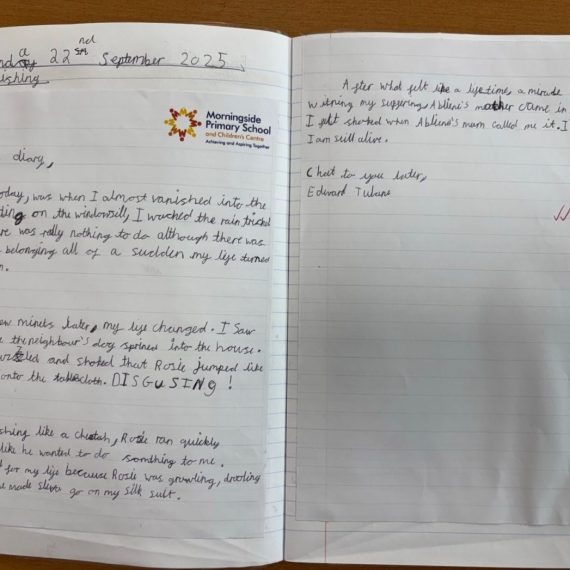 22nd September 2025
ishing
Morningside
Primary School
and Children's Centre
Achieving and Aspiring Together
diary,
oday, was when I almost vanished into the
ting on the windowsill, I wached the rain
ere was rally nothing to do although there was
belonging all of a sudden my life turned
n.
ew minets later, my life changed. I saw
the neighbour's dog sprined into the house.
and shoked that Rosie jumped like
onto the cloth. DISGUSING!
shing like a chetah, Rosie ran quickly
like he wanted to do somthing to me.
d for my life because Rosie was growling, drooling
e made go on my silk suit.
After what felt like a lifetime, a
my suffering, Abliene's mother came in
I felt shoked when Abliene's mum called me it. I
I am still alive.
Chat to you later,
Edward Tulane